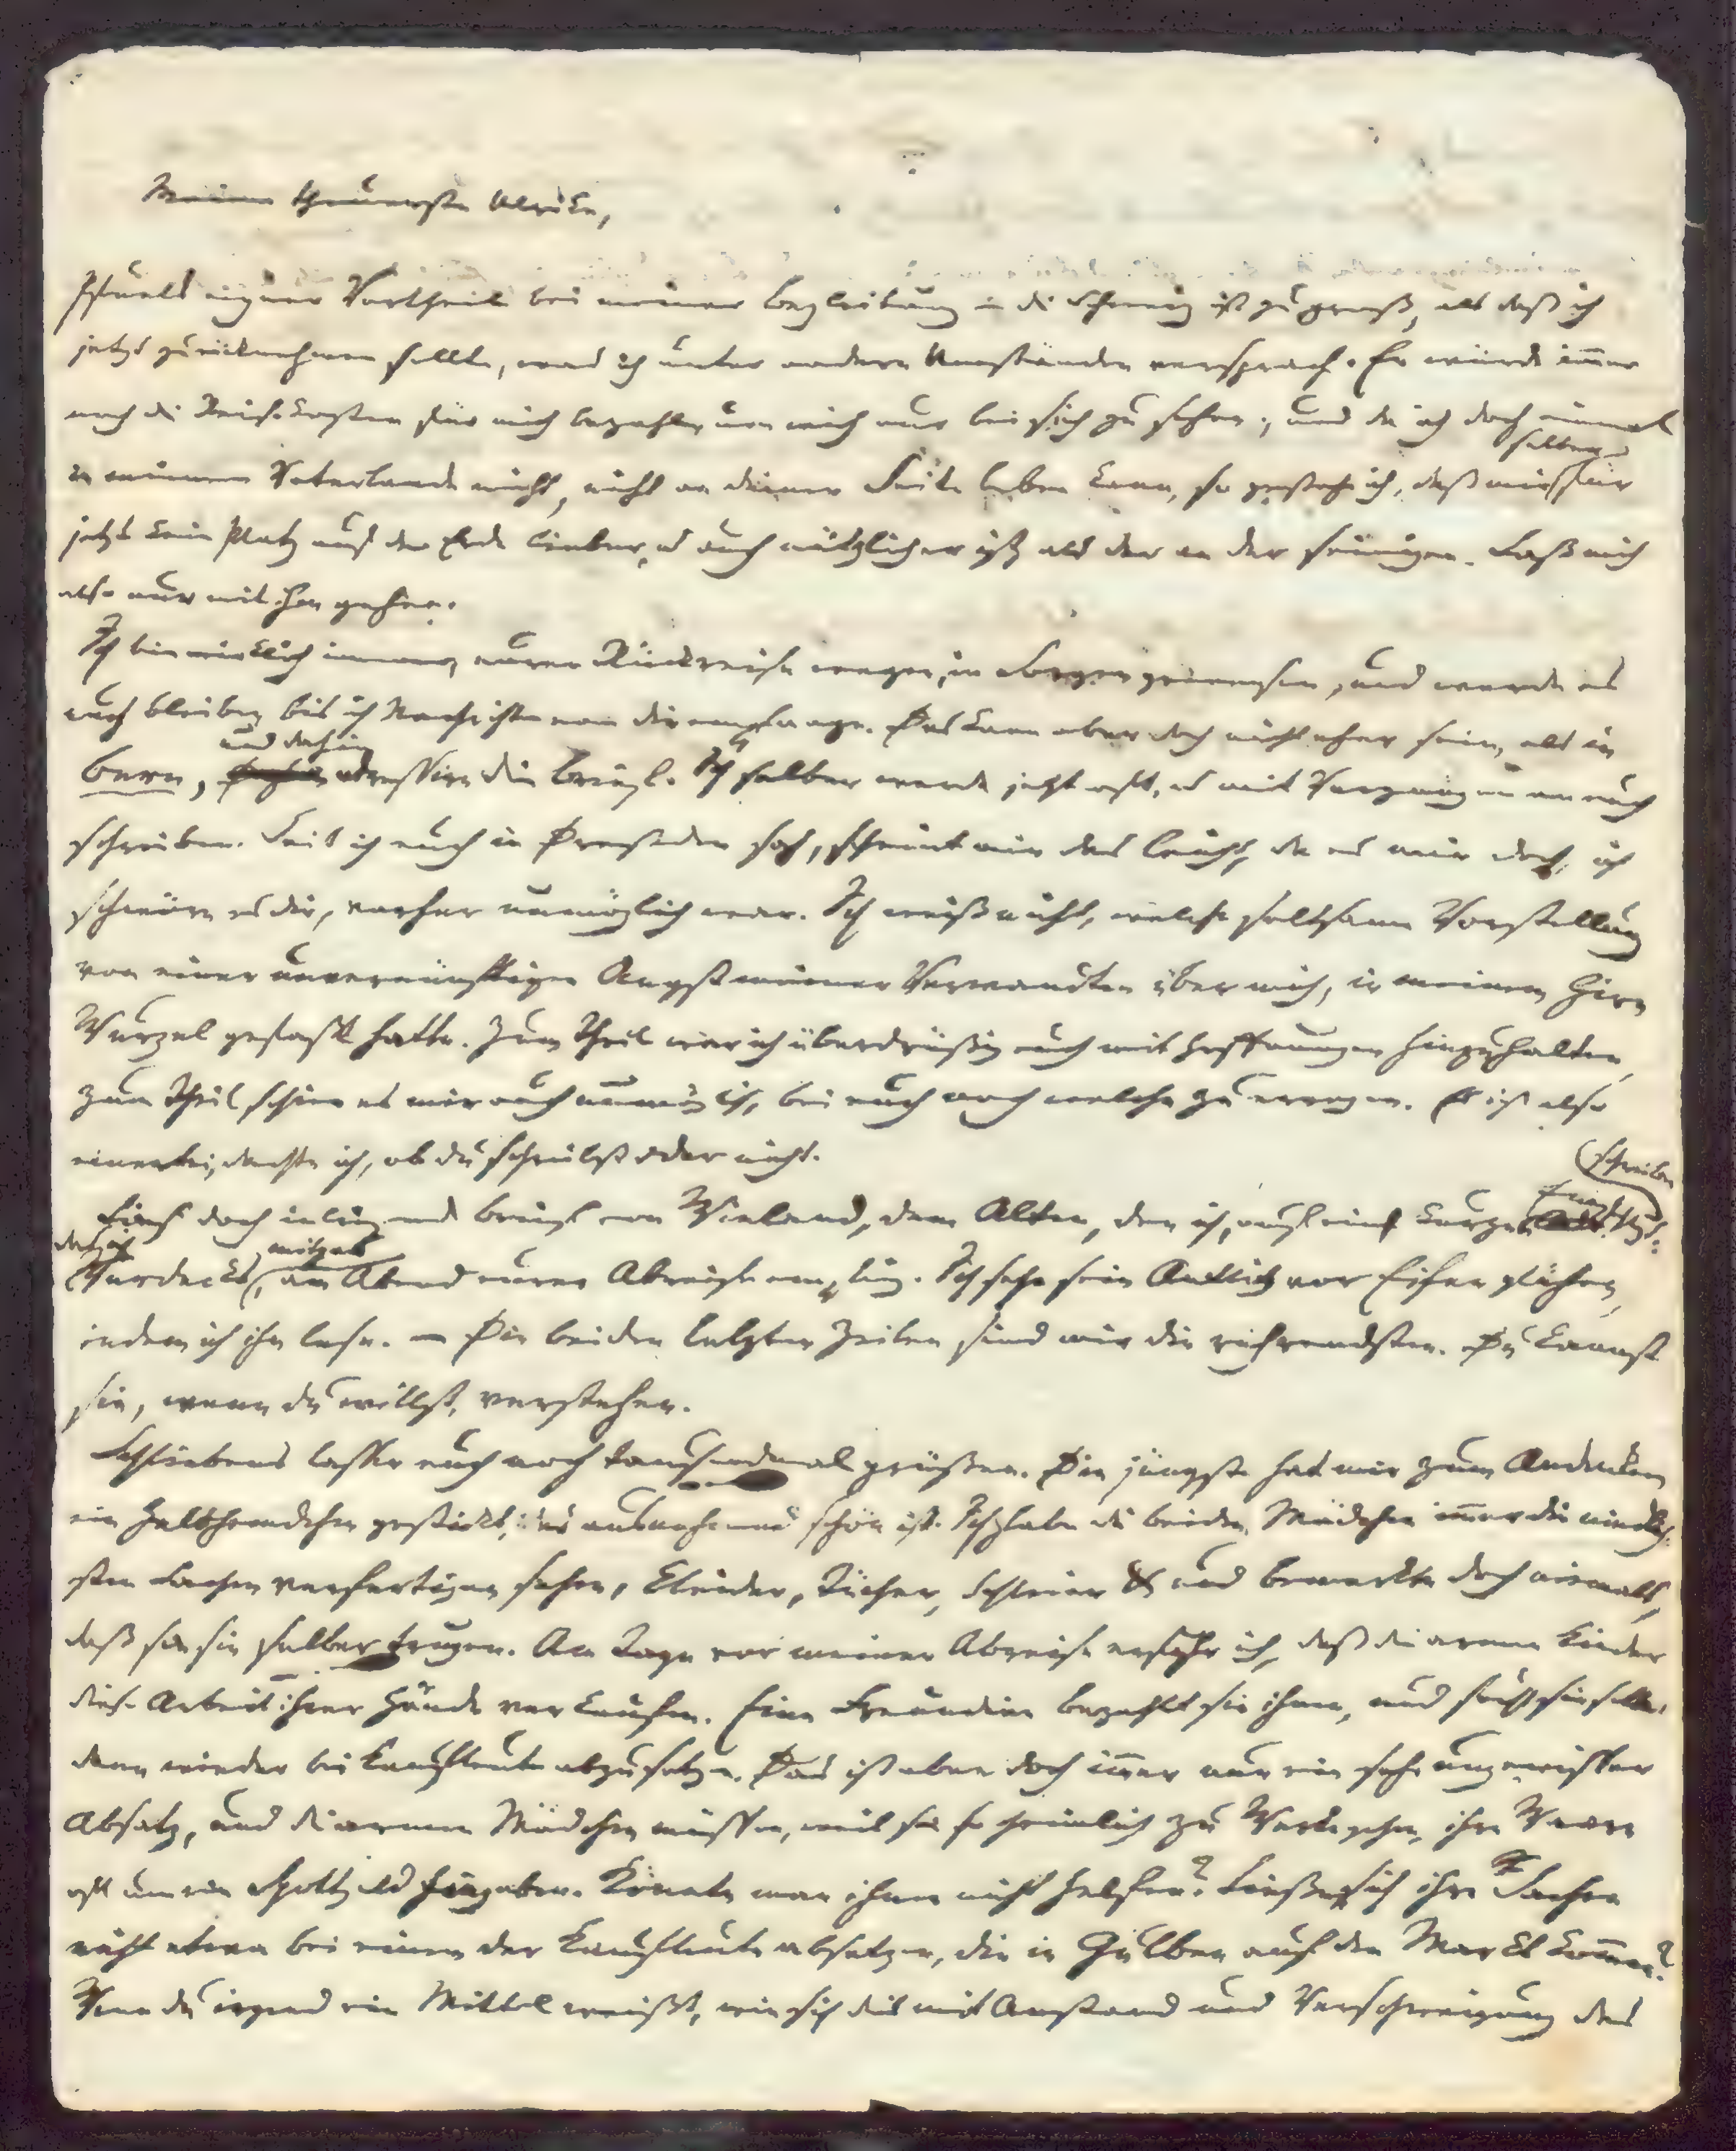 Meine theuerste Ulrike,
Pfuels eigner Vortheil bei meiner Begleitung in die Schweiz ist zu groß, als daß ich
jetzt zurücknehmen sollte, was ich unter andern Umständen versprach. Er würde im̄er
noch die Reisekosten für mich bezahlen, um mich nur bei sich zu sehen; und da ich doch einmal
in meinem Vaterlande nicht, nicht an deiner Seite leben kann, so gestehe ich, daß mir selber für
jetzt kein Platz auf der Erde lieber, u auch nützlicher ist, als der an der seinigen. Laß mich
also nur mit ihm gehen.
Ich bin wirklich immer, eurer Rückreise wegen, in Sorgen gewesen, und werde es
auch bleiben, bis ich Nachrichten von dir empfange. Das kann aber doch nicht eher sein, als in
Bern, und dahin adressire die Briefe. Ich selber werde jetzt oft, u mit Vergnügen an euch
schreiben. Seit ich euch in Dreßden sah, scheint mir das leicht, da es mir doch, ich
schwöre es dir, vorher unmöglich war. Ich weiß nicht, welche seltsame Vorstellung
von einer unvernünftigen Angst meiner Verwandten über mich, in meinem Hirn
Wurzel gefaßt hatte. Zum Theil war ich überdrüßig euch mit Hoffnungen hinzuhalten,
zum Theil schien es mir auch unmöglich, bei euch noch welche zu erregen. Es ist also
einerlei, dachte ich, ob du schreibst oder nicht.
Lies doch inliegenden Brief von Wieland, dem Alten, den ich, auf ein kurzes Empfehlungs-
schreiben
daß ich Verdecks mitgab, am Abend eurer Abreise empfing. Ich sehe sein Antlitz vor Eifer glühen,
indem ich ihn lese. — Die beiden letzten Zeilen sind mir die rührendsten. Du kannst
sie, wenn du willst, verstehen.
Schliebens lassen euch noch tausendmal grüßen. Die jüngste hat mir zum Andenken
ein Halshemdchen gestickt, das ausnehmend schön ist. Ich habe die beiden Mädchen im̄er die niedlich-
sten Sachen verfertigen sehen, Kleider, Tücher, Schleier &c und bemerkte doch niemals,
daß sie sie selber trugen. Am Tage vor meiner Abreise erfuhr ich, daß die armen Kinder
diese Arbeit ihrer Hände verkaufen. Eine Freundinn bezahlt sie ihnen, und sucht sie selber
dann wieder bei Kaufleute abzusetzen. Das ist aber doch im̄er nur ein sehr ungewisser
Absatz, und die armen Mädchen müssen, weil sie so heimlich zu Werke gehn, ihre Waare
oft um ein Spottgeld hingeben. Könnte man ihnen nicht helfen? Ließen sich ihre Sachen
nicht etwa bei einem der Kaufleute absetzen, die in Gulben auf den Markt kom̄en?
Wenn du irgend ein Mittel weißt, wie sich dies mit Anstand und Verschweigung des